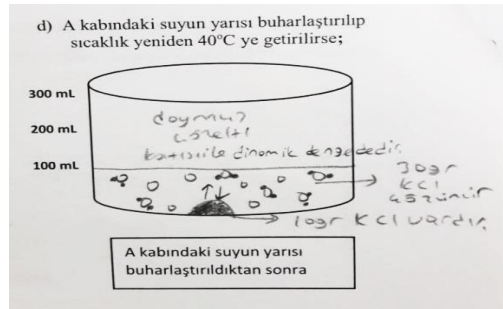 d) A kabındaki suyun yarısı buharlaştırılıp
sıcaklık yeniden 40°C ye getirilirse;
300 mL
200 mL
100 mL
doymuş
çözelti
katısı ile dinamik dengededir.
30gr
KCl
çözünür
10gr KCl vardır.
A kabındaki suyun yarısı
buharlaştırıldıktan sonra